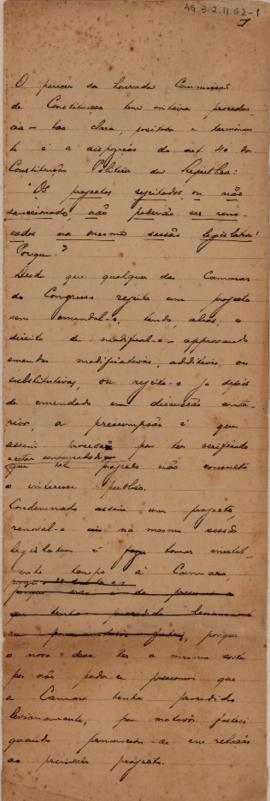 AG 3.2.11.62-1
1
O parecer da honrada Commissão
de Constituição tem inteira proceden-
cia tão clara, positiva e terminan-
te é a disposição do art. 40 da
Constituição Politica da Republica:
"Os projectos rejeitados, ou não
sanccionados, não poderão ser reno-
vados na mesma sessão legislativa"
Porque?
Desde que qualquer das Camaras
do Congresso rejeita um projecto
sem emendal-o, tendo, aliás, o
direito de modifical-o approvando
emendas modificativas, additivas ou
substitutivas, ou rejeita-o já depois
de emendado em discussão ante-
rior, a presumpção é que
assim procede por ter verificado
que tal projecto não consulta
o interesse publico.
Condemnado assim um projecto,
renoval-o na mesma sessão
legislativa é tomar inutil-
mente tempo á Camara,
porque
o novo deve ter a mesma sorte
por não poder-se presumir que
a Camara tenha procedido
levianamente, por motivos futeis
quando pronunciou-se em relação
ao primeiro projecto.